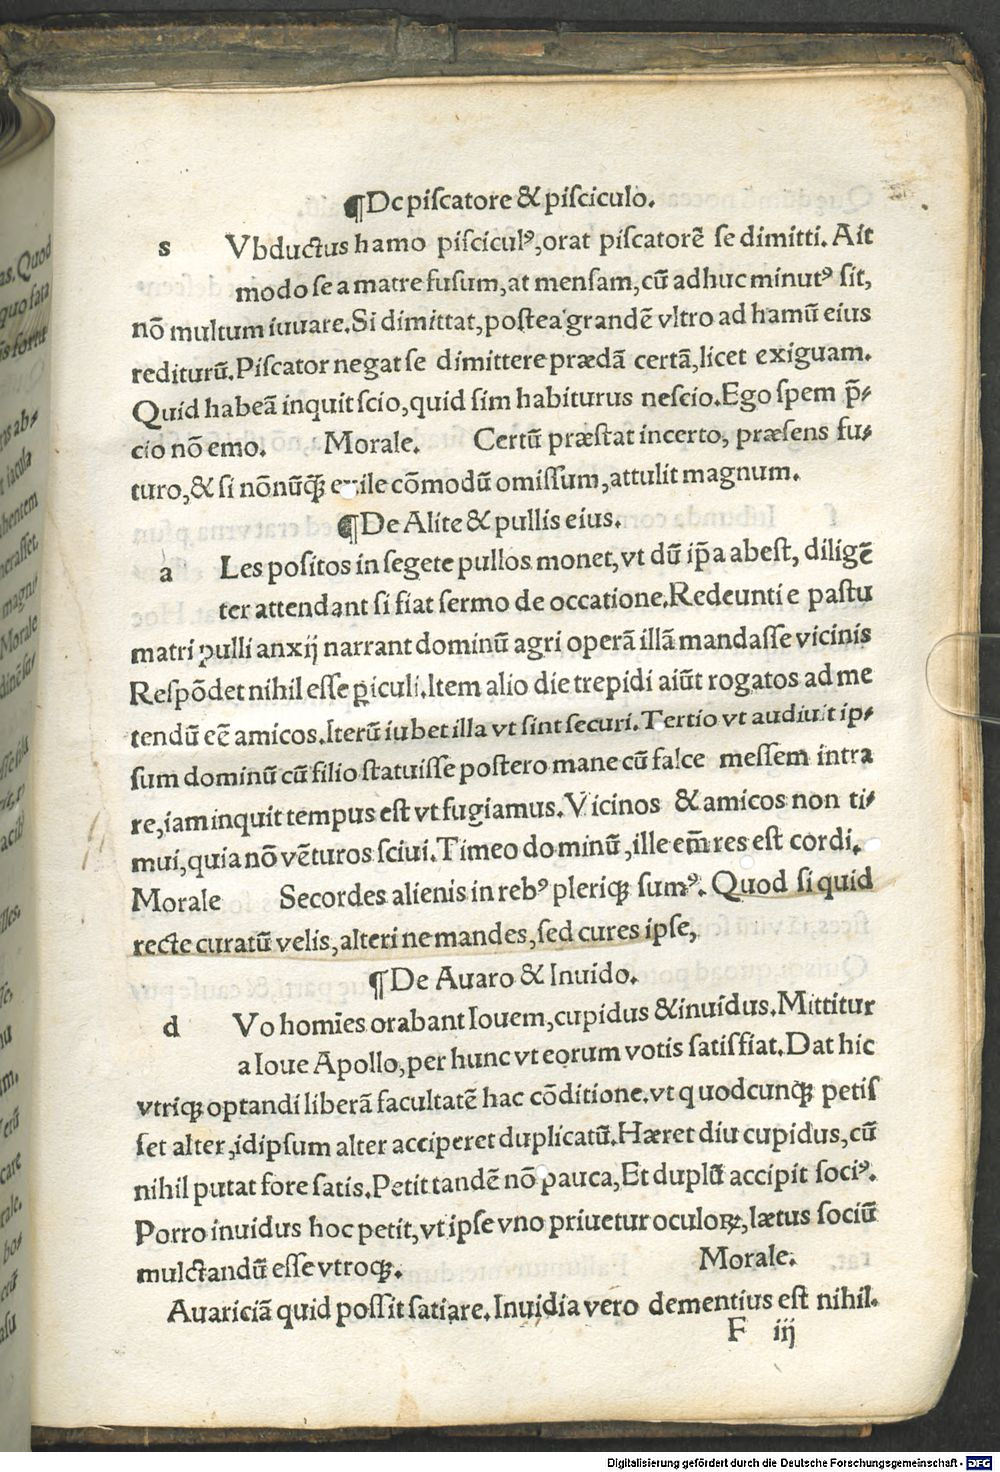 ¶De piſcatore & piſciculo.
s Vbductus hamo piſciculꝰ, orat piſcatorē ſe dimitti. Ait
modo ſe a matre fuſum, at menſam, cū adhuc minutꝰ ſit,
nō multum iuuare. Si dimittat, poſtea grandē vltro ad hamū eius
rediturū. Piſcator negat ſe dimittere prædā certā, licet exiguam.
Quid habeā inquit ſcio, quid ſim habiturus neſcio. Ego ſpem p̄⸗
cio nō emo. Morale. Certū præſtat incerto, præſens fu⸗
turo, & ſi nōnūꝗ̄ exile cōmodū omiſſum, attulit magnum.
¶De Alite & pullis eius.
a Les poſitos in ſegete pullos monet, vt dū ip̄a abeſt, diligē
ter attendant ſi fiat ſermo de occatione. Redeunti e paſtu
matri pulli anxij narrant dominū agri operā illā mandaſſe vicinis
Reſpōdet nihil eſſe ꝑiculi. Item alio die trepidi aiūt rogatos ad me
tendū eē amicos. Iterū iubet illa vt ſint ſecuri. Tertio vt audiuit ip⸗
ſum dominū cū filio ſtatuiſſe poſtero mane cū falce meſſem intra
re, iam inquit tempus eſt vt fugiamus. Vicinos & amicos non ti⸗
mui, quia nō vēturos ſciui. Timeo dominū, ille em̄ res eſt cordi.
Morale Secordes alienis in rebꝰ pleriꝗ ſumꝰ. Quod ſi quid
recte curatū velis, alteri ne mandes, ſed cures ipſe,
¶De Auaro & Inuido.
d Vo homīes orabant Iouem, cupidus & inuidus. Mittitur
a Ioue Apollo, per hunc vt eorum votis ſatiſfiat. Dat hic
vtriꝗ optandi liberā facultatē hac cōditione. vt quodcunꝗ petiſ
ſet alter, idipſum alter acciperet duplicatū. Hæret diu cupidus, cū
nihil putat fore ſatis. Petit tandē nō pauca, Et duplū accipit ſociꝰ.
Porro inuidus hoc petit, vt ipſe vno priuetur oculoꝝ, lætus ſociū
mulctandū eſſe vtroꝗ. Morale.
Auariciā quid poſſit ſatiare. Inuidia vero dementius eſt nihil.
F iij
as. Quod
quo fata
Morale
Digitalisierung gefördert durch die Deutsche Forschungsgemeinschaft - DFG